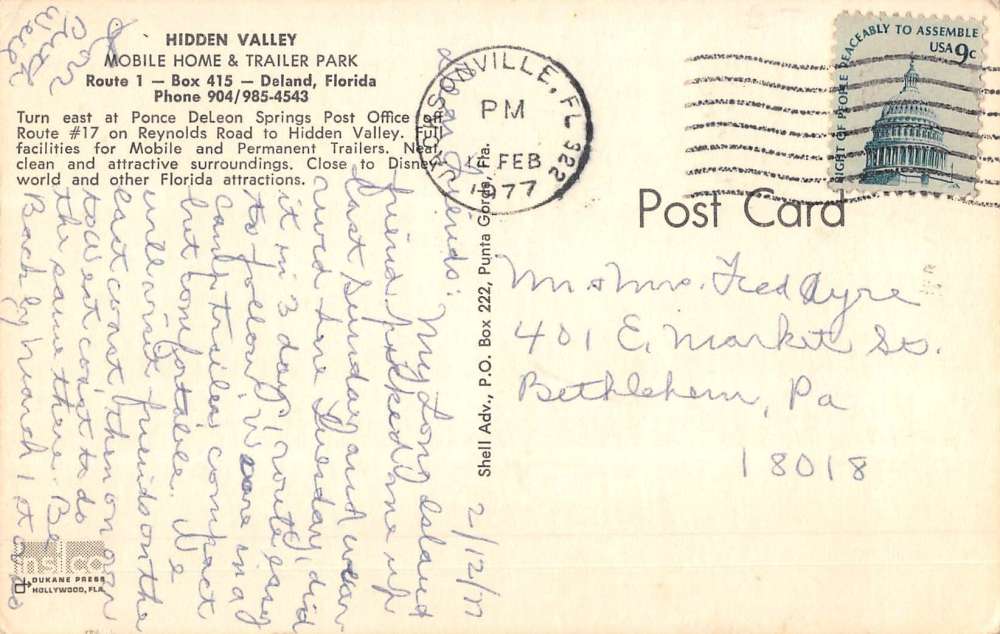 HIDDEN VALLEY
MOBILE HOME & TRAILER PARK
Route 1 — Box 415 — Deland, Florida
Phone 904/985-4543
Turn east at Ponce DeLeon Springs Post Office off
Route #17 on Reynolds Road to Hidden Valley. Full
facilities for Mobile and Permanent Trailers. Neat,
clean and attractive surroundings. Close to Disney
world and other Florida attractions.
JACKSONVILLE, FL 322
PM
FEB
1977
RIGHT OF PEOPLE PEACEABLY TO ASSEMBLE
USA 9c
Post Card
Mr & Mrs. Fred Ayre
401 E. Market St.
Bethlehem, Pa
18018
Shell Adv., P.O. Box 222, Punta Gorda, Fla.
2/12/77
Dear Friends:
My Long Island
friend picked me up
last Sunday and we ar-
rived here Tuesday, did
it in 3 days, route easy
to follow. We are in a
camp trailer, compact
but comfortable. We
will visit friends on the
east coast, then on over
to West coast to do
the same there. Be
Back by March 1st or so
DUKANE PRESS
HOLLYWOOD, FLA.